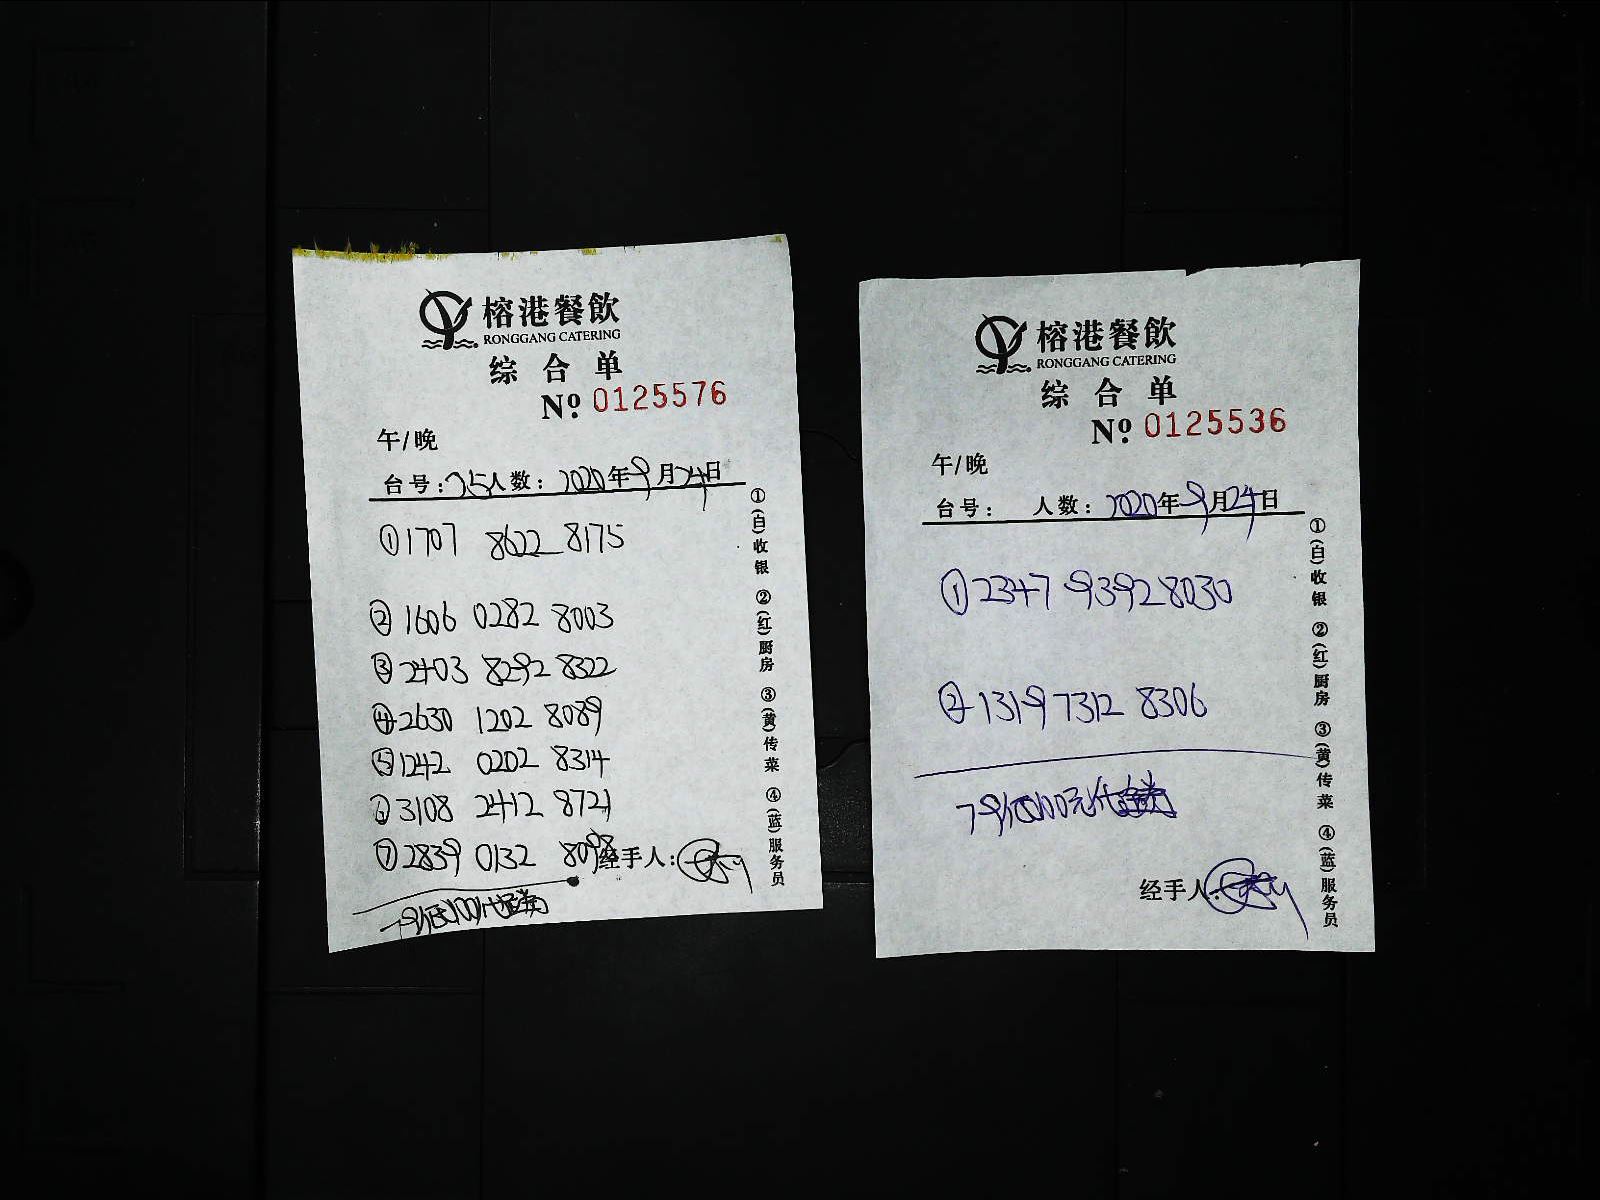 榕港餐飲
RONGGANG CATERING
综合单
Nº 0125576
午/晚
台号:25人数:2020年9月24日
①1707 8622 8175
②1606 0282 8003
③2403 8292 8322
④2630 1202 8089
⑤1242 0202 8314
⑥3108 2412 8721
⑦2839 0132 8098
经手人:
100代金券
①(白)收银 ②(红)厨房 ③(黄)传菜 ④(蓝)服务员
榕港餐飲
RONGGANG CATERING
综合单
Nº 0125536
午/晚
台号: 人数:2020年9月24日
①2347 9392 8030
②1319 7312 8306
100元代金券
经手人:
①(白)收银 ②(红)厨房 ③(黄)传菜 ④(蓝)服务员